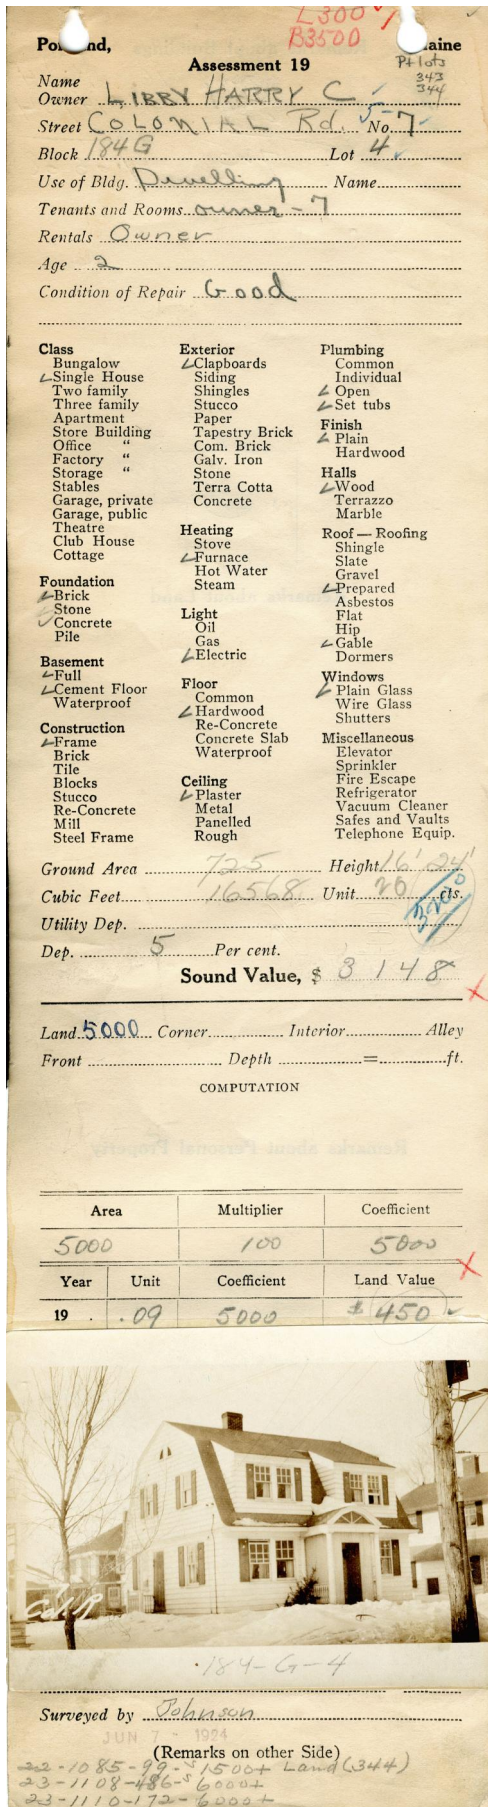 L300 ✓
B3500
Po nd, aine
Assessment 19
Pt lots
343
344
Name
Owner LIBBY HARRY C
Street COLONIAL Rd. 5- No. 7
Block 184 G Lot 4
Use of Bldg. Dwelling Name
Tenants and Rooms owner - 7
Rentals Owner
Age 2
Condition of Repair Good
Class
Bungalow
✓ Single House
Two family
Three family
Apartment
Store Building
Office "
Factory "
Storage "
Stables
Garage, private
Garage, public
Theatre
Club House
Cottage
Foundation
✓ Brick
✓ Stone
✓ Concrete
Pile
Basement
✓ Full
✓ Cement Floor
Waterproof
Construction
✓ Frame
Brick
Tile
Blocks
Stucco
Re-Concrete
Mill
Steel Frame
Exterior
✓ Clapboards
Siding
Shingles
Stucco
Paper
Tapestry Brick
Com. Brick
Galv. Iron
Stone
Terra Cotta
Concrete
Heating
Stove
✓ Furnace
Hot Water
Steam
Light
Oil
Gas
✓ Electric
Floor
Common
✓ Hardwood
Re-Concrete
Concrete Slab
Waterproof
Ceiling
✓ Plaster
Metal
Panelled
Rough
Plumbing
Common
Individual
✓ Open
✓ Set tubs
Finish
✓ Plain
Hardwood
Halls
✓ Wood
Terrazzo
Marble
Roof — Roofing
Shingle
Slate
Gravel
✓ Prepared
Asbestos
Flat
Hip
✓ Gable
Dormers
Windows
✓ Plain Glass
Wire Glass
Shutters
Miscellaneous
Elevator
Sprinkler
Fire Escape
Refrigerator
Vacuum Cleaner
Safes and Vaults
Telephone Equip.
Ground Area 725 Height 16' 24'
Cubic Feet 16568 Unit 20 cts.
3200
Utility Dep.
Dep. 5 Per cent.
Sound Value, $ 3148
Land 5000 Corner Interior Alley
Front Depth = ft.
COMPUTATION
Area Multiplier Coefficient
5000 100 5000
Year Unit Coefficient Land Value
19 . .09 5000 $450 ✓
Col. R
184-G-4
Surveyed by Johnson
JUN 7 - 1924
(Remarks on other Side)
22-1085-99-s 1500+ Land (344)
23-1108-486-s 6000+
23-1110-172-6000+